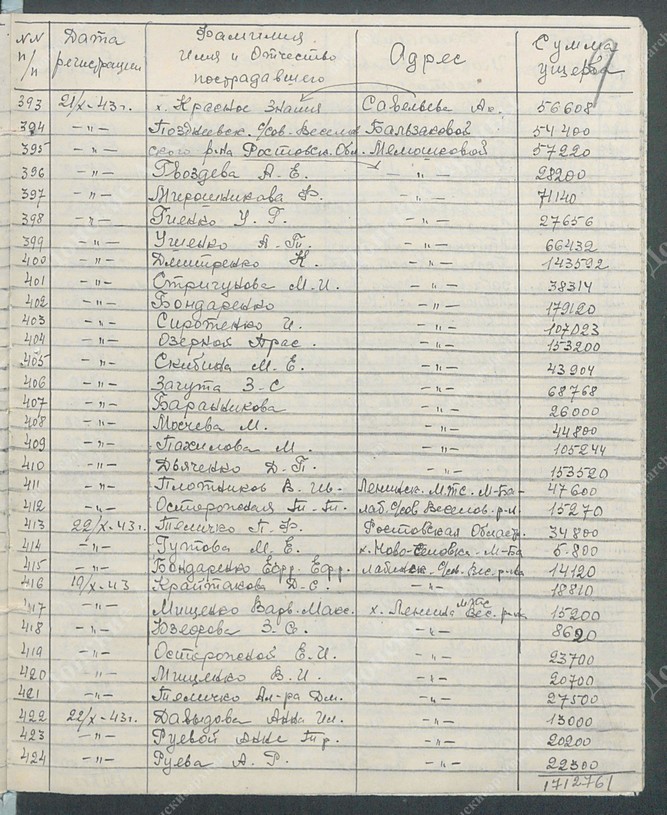 NN п/п Дата регистрации Фамилия Имя и Отчество пострадавшего Адрес Сумма ущерба
393 21/X-43г. х. Красное Знамя Савельева Ан. 56608
394 -"- Позднеевск. с/сов. Веселов Бальзаковой 54400
395 -"- ского р-на Ростовск. Обл. Мемошковой 57220
396 -"- Гвоздева А. Е. -"- 28200
397 -"- Мирошникова Ф. -"- 71140
398 -"- Гиенко У. Г. -"- 27656
399 -"- Ущенко А. П. -"- 66432
400 -"- Дмитренко К. -"- 143592
401 -"- Стригунова М. И. -"- 38314
402 -"- Бондаренко -"- 179120
403 -"- Сиротенко И. -"- 107023
404 -"- Озерной Арас. -"- 153200
405 -"- Скибина М. Е. -"- 43904
406 -"- Загута З. С -"- 68768
407 -"- Баранникова -"- 26000
408 -"- Мосчева М. -"- 44800
409 -"- Пахилова М. -"- 105244
410 -"- Дьяченко Д. П. -"- 153520
411 -"- Плотников В. Ив. Ленинск. МТС. М-Ба- 47600
412 -"- Острропская П. Т. лаб. с/сов Веселов. р-н 15270
413 22/X-43г. Темичко П. Ф. Ростовская Област. 34800
414 -"- Гутова М. Е. х. Ново- М-Ба 5.800
415 -"- Бондаренко Ефр. Ефр. лабинск. с/сов. Вес. р-на 14120
416 19/X-43 Крайтакова Д. С. -"- 18810
417 -"- Мищенко Варв. Макс. х. Ленина МТС Вес. р-на 15200
418 -"- З. С. -"- 8620
419 -"- Остропской Е. И. -"- 23700
420 -"- Мищенко В. И. -"- 20700
421 -"- Темичко Ал-ра Дм. -"- 27500
422 22/X-43г. Давыдова Анна Ил. -"- 13000
423 -"- Руевой Анне Гр. -"- 20200
424 -"- Руева А. Г. -"- 22300
1712761